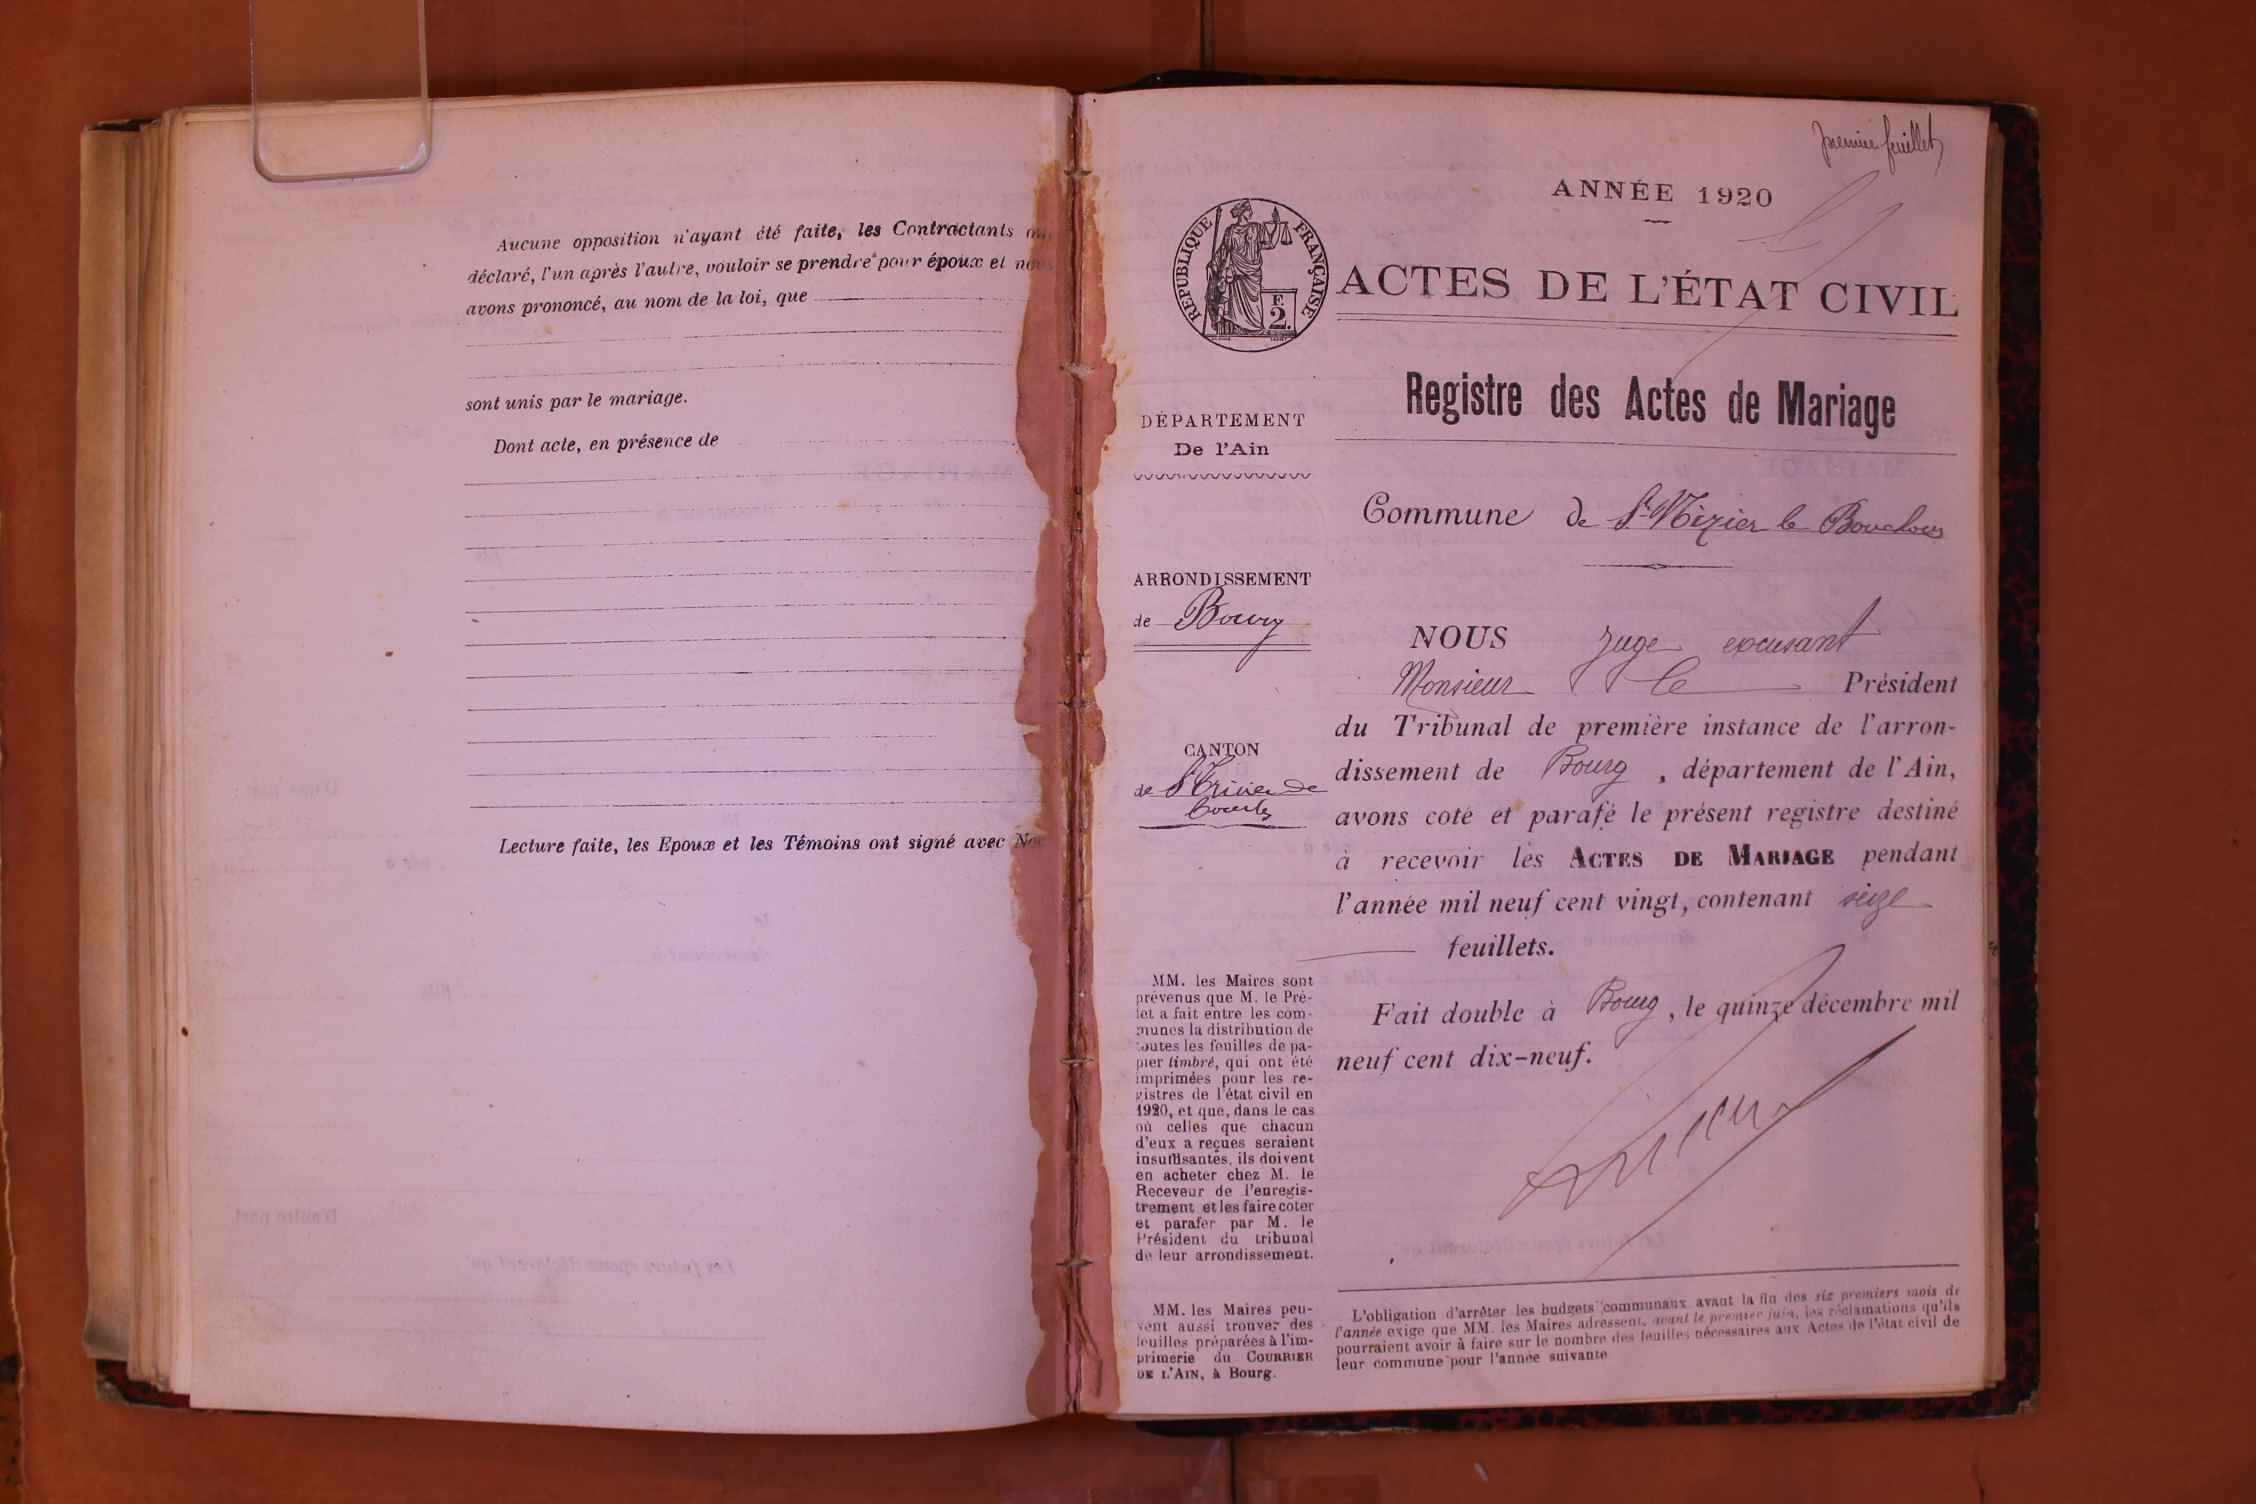 Aucune opposition n'ayant été faite, les Contractants
déclaré, l'un après l'autre, vouloir se prendre pour époux et nous
avons prononcé, au nom de la loi, que
sont unis par le mariage.
Dont acte, en présence de
Lecture faite, les Epoux et les Témoins ont signé avec
premier feuillet
ANNÉE 1920
REPUBLIQUE FRANÇAISE
F.
2.
ACTES DE L'ÉTAT CIVIL
Registre des Actes de Mariage
DÉPARTEMENT
De l'Ain
Commune de St Nizier le Bouchoux
ARRONDISSEMENT
de Bourg
CANTON
de St Trivier de
Courtes
NOUS Juge excusant
Monsieur le Président
du Tribunal de première instance de l'arron-
dissement de Bourg, département de l'Ain,
avons coté et parafé le présent registre destiné
à recevoir les ACTES DE MARIAGE pendant
l'année mil neuf cent vingt, contenant seize
feuillets.
Fait double à Bourg, le quinze décembre mil
neuf cent dix-neuf.
MM. les Maires sont
prévenus que M. le Pré-
fet a fait entre les com-
munes la distribution de
toutes les feuilles de pa-
pier timbré, qui ont été
imprimées pour les re-
gistres de l'état civil en
1920, et que, dans le cas
où celles que chacun
d'eux a reçues seraient
insuffisantes, ils doivent
en acheter chez M. le
Receveur de l'enregis-
trement et les faire coter
et parafer par M. le
Président du tribunal
de leur arrondissement.
MM. les Maires peu-
vent aussi trouver des
feuilles préparées à l'im-
primerie du COURRIER
DE L'AIN, à Bourg.
L'obligation d'arrêter les budgets communaux avant la fin des six premiers mois de
l'année exige que MM. les Maires adressent, avant le premier juin, les réclamations qu'ils
pourraient avoir à faire sur le nombre des feuilles nécessaires aux Actes de l'état civil de
leur commune pour l'année suivante